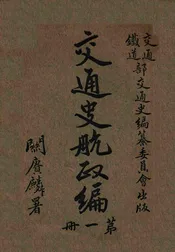 交通部
鐵道部
交通史編纂委員會出版
交通史航政編
第一冊
關賡麟署